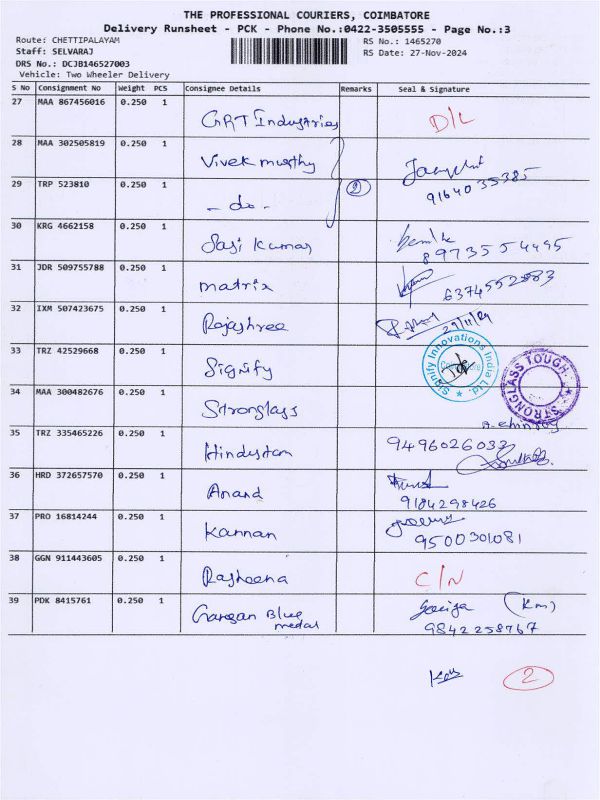 THE PROFESSIONAL COURIERS, COIMBATORE
Delivery Runsheet - PCK - Phone No.:0422-3505555 - Page No.:3
Route: CHETTIPALAYAM
RS No.: 1465270
Staff: SELVARAJ
RS Date: 27-Nov-2024
DRS No.: DCJB146527003
Vehicle: Two Wheeler Delivery
S No Consignment No Weight PCS Consignee Details Remarks Seal & Signature
27 MAA 867456016 0.250 1 GRT Industries D/L
28 MAA 302505819 0.250 1 Vivek murthy
29 TRP 523810 0.250 1 - do - 2 9164035385
30 KRG 4662158 0.250 1 Sasi Kumar 8973554495
31 JDR 509755788 0.250 1 matrix 6374552883
32 IXM 507423675 0.250 1 Rajashree 27/11/24
33 TRZ 42529668 0.250 1 Signify Signify Innovations India Ltd.
34 MAA 300482676 0.250 1 Stronglass STRONGLASS TOUGH
35 TRZ 335465226 0.250 1 Hindustan 9496026033
36 HRD 372657570 0.250 1 Anand
9184298426
37 PRO 16814244 0.250 1 Kannan
9500301081
38 GGN 911443605 0.250 1 Rasheena C/N
39 PDK 8415761 0.250 1 Ganesan Blue
medal
9842258767
2